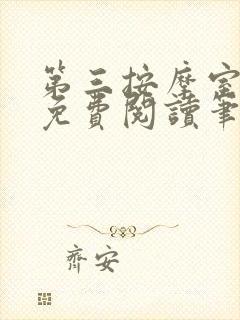 第三按摩室
免費閱讀筆
齊安